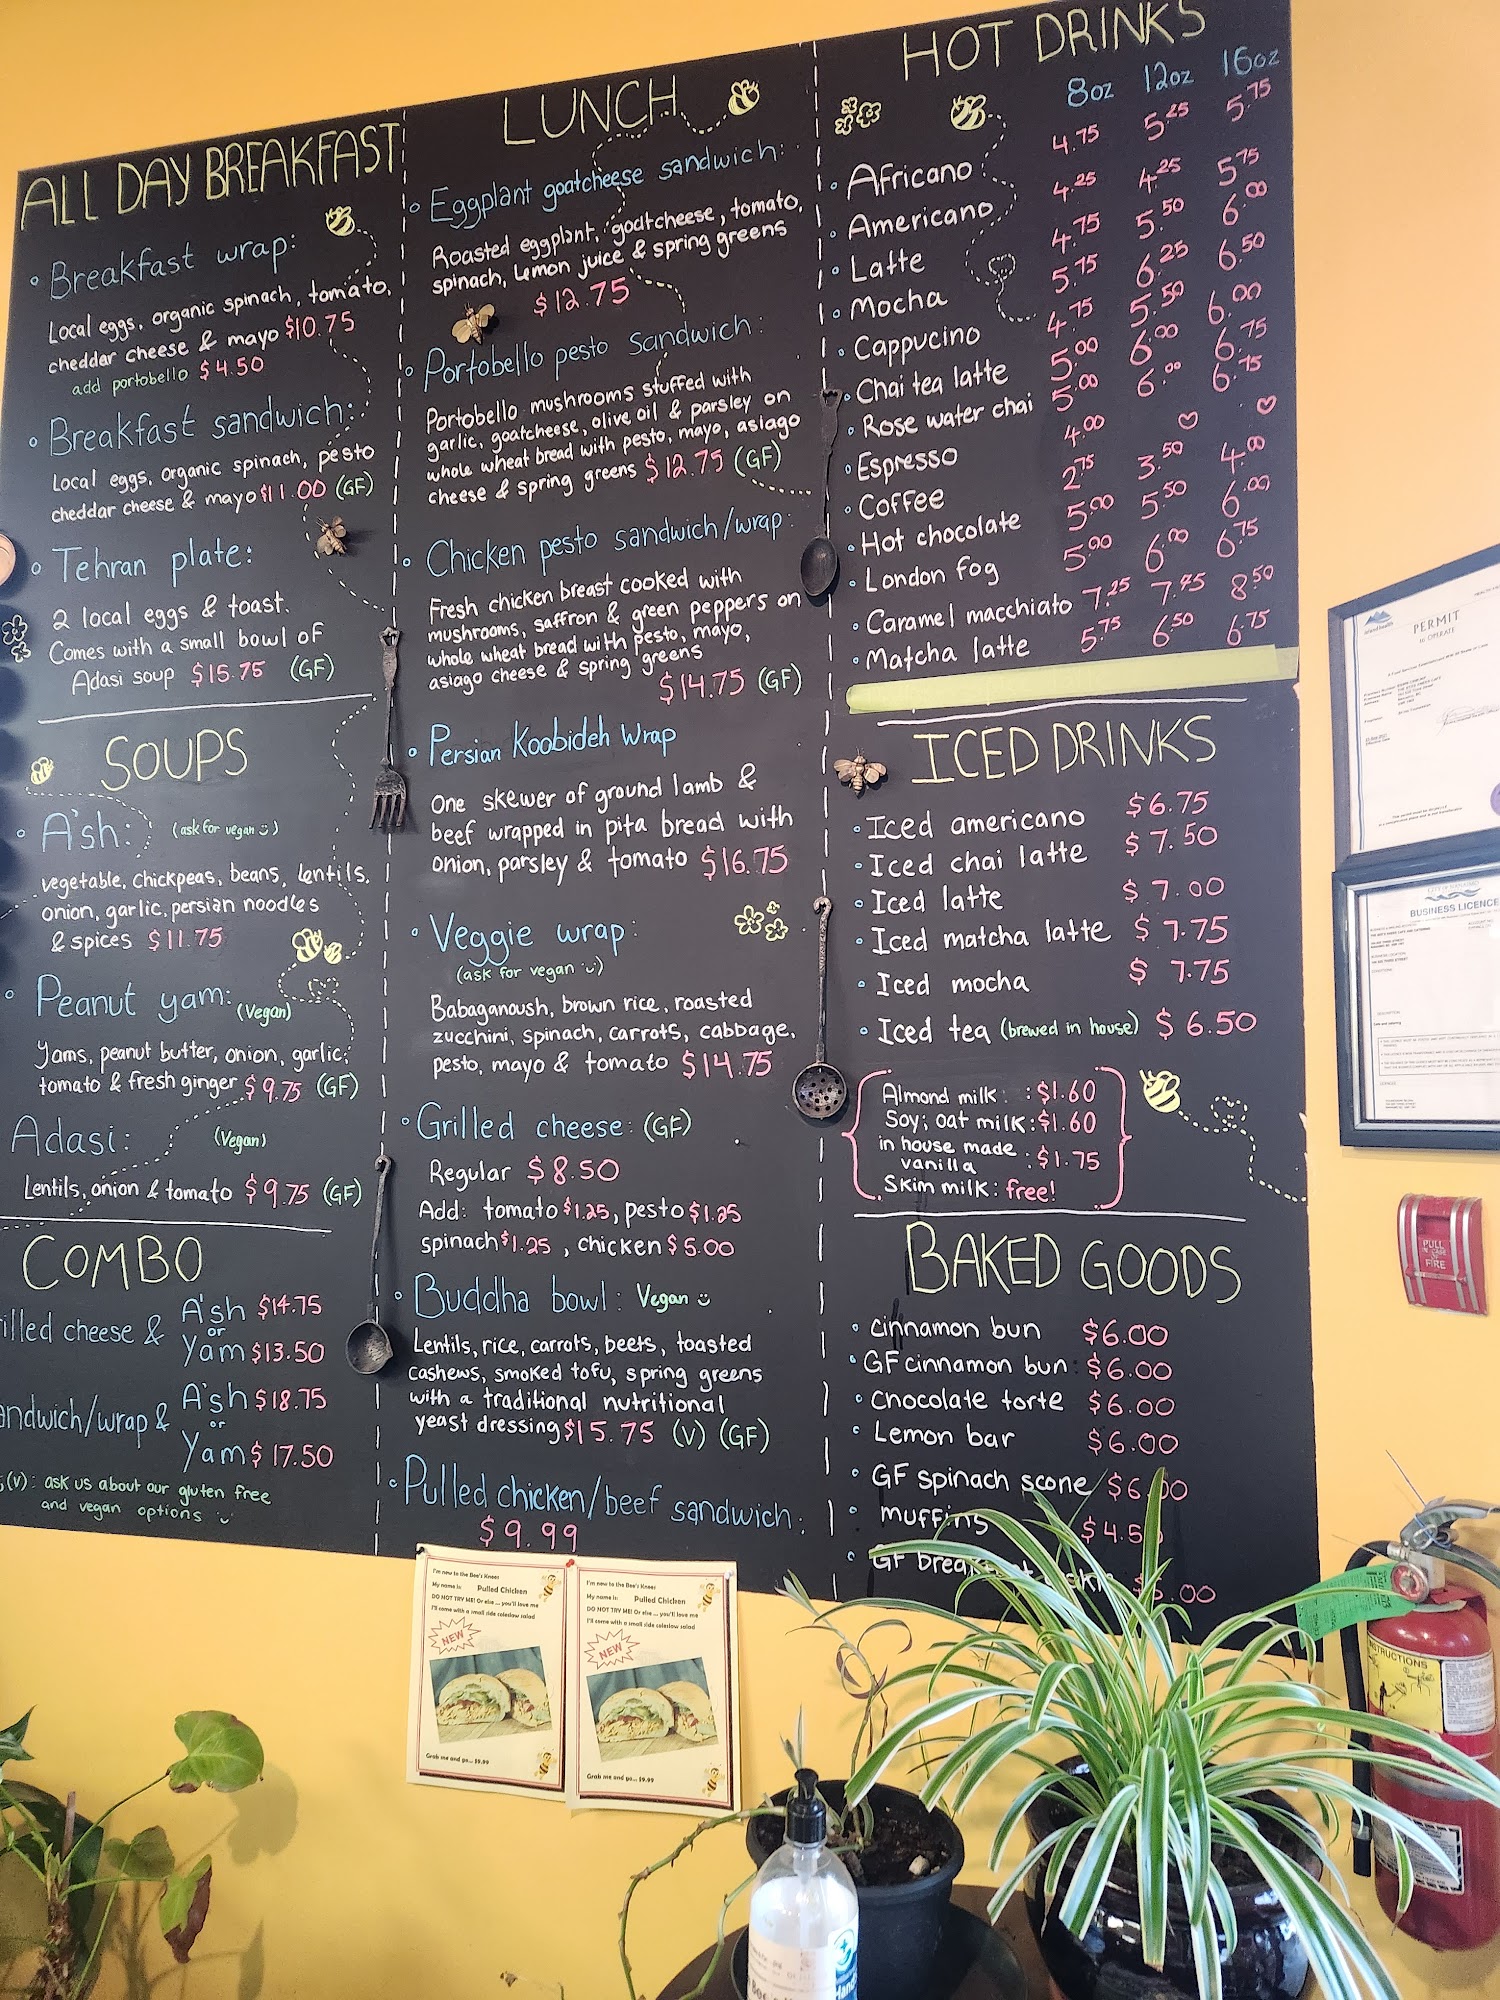 ALL DAY BREAKFAST
Breakfast wrap:
Local eggs, organic spinach, tomato,
cheddar cheese & mayo $10.75
add portobello $4.50
Breakfast sandwich:
Local eggs, organic spinach, pesto
cheddar cheese & mayo $11.00 (GF)
Tehran plate:
2 local eggs & toast.
Comes with a small bowl of
Adasi soup $15.75 (GF)
SOUPS
A'sh: (ask for vegan)
vegetable, chickpeas, beans, lentils,
onion, garlic, persian noodles
& spices $11.75
Peanut yam: (Vegan)
Yams, peanut butter, onion, garlic,
tomato & fresh ginger $9.75 (GF)
Adasi: (Vegan)
Lentils, onion & tomato $9.75 (GF)
COMBO
illed cheese & A'sh $14.75
or
Yam $13.50
andwich/wrap & A'sh $18.75
or
Yam $17.50
(V): ask us about our gluten free
and vegan options
LUNCH
Eggplant goatcheese sandwich:
Roasted eggplant, goatcheese, tomato,
spinach, lemon juice & spring greens
$12.75
Portobello pesto sandwich:
Portobello mushrooms stuffed with
garlic, goatcheese, olive oil & parsley on
whole wheat bread with pesto, mayo, asiago
cheese & spring greens $12.75 (GF)
Chicken pesto sandwich/wrap:
Fresh chicken breast cooked with
mushrooms, saffron & green peppers on
whole wheat bread with pesto, mayo,
asiago cheese & spring greens
$14.75 (GF)
Persian Koobideh Wrap
One skewer of ground lamb &
beef wrapped in pita bread with
onion, parsley & tomato $16.75
Veggie wrap:
(ask for vegan)
Babaganoush, brown rice, roasted
zucchini, spinach, carrots, cabbage,
pesto, mayo & tomato $14.75
Grilled cheese: (GF)
Regular $8.50
Add: tomato $1.25, pesto $1.25
spinach $1.25, chicken $5.00
Buddha bowl: Vegan
Lentils, rice, carrots, beets, toasted
cashews, smoked tofu, spring greens
with a traditional nutritional
yeast dressing $15.75 (V) (GF)
Pulled chicken/beef sandwich:
$9.99
HOT DRINKS
8oz 12oz 16oz
Africano 4.75 5.25 5.75
Americano 4.25 4.25 5.75
Latte 4.75 5.50 6.00
Mocha 5.75 6.25 6.50
Cappucino 4.75 5.50 6.00
Chai tea latte 5.00 6.00 6.75
Rose water chai 5.00 6.00 6.75
Espresso 4.00 ♡ ♡
Coffee 2.75 3.50 4.00
Hot chocolate 5.00 5.50 6.00
London fog 5.00 6.00 6.75
Caramel macchiato 7.25 7.75 8.50
Matcha latte 5.75 6.50 6.75
ICED DRINKS
Iced americano $6.75
Iced chai latte $7.50
Iced latte $7.00
Iced matcha latte $7.75
Iced mocha $7.75
Iced tea (brewed in house) $6.50
Almond milk: $1.60
Soy; oat milk: $1.60
in house made
vanilla : $1.75
Skim milk: free!
BAKED GOODS
cinnamon bun $6.00
GF cinnamon bun $6.00
Chocolate torte $6.00
Lemon bar $6.00
GF spinach scone $6.00
muffins $4.5
GF
.00
I'm new to the Bee's Knees
My name is: Pulled Chicken
DO NOT TRY ME! Or else ... you'll love me
I'll come with a small side coleslaw salad
NEW
Grab me and go... $9.99
I'm new to the Bee's Knees
My name is: Pulled Chicken
DO NOT TRY ME! Or else ... you'll love me
I'll come with a small side coleslaw salad
NEW
Grab me and go... $9.99
PERMIT
TO OPERATE
BUSINESS LICENCE
PULL
IN CASE
OF
FIRE
INSTRUCTIONS